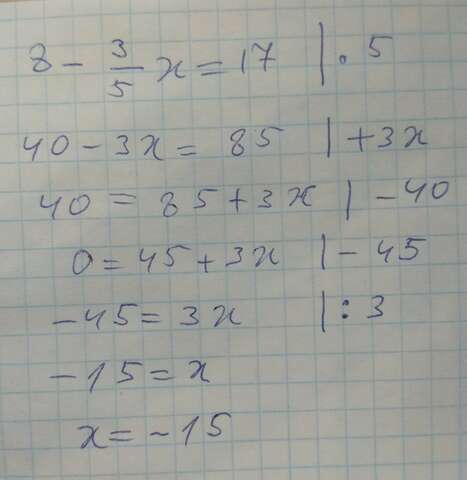 8 - 3/5 x = 17 | · 5
40 - 3x = 85 | +3x
40 = 85 + 3x | - 40
0 = 45 + 3x | - 45
-45 = 3x | : 3
-15 = x
x = -15